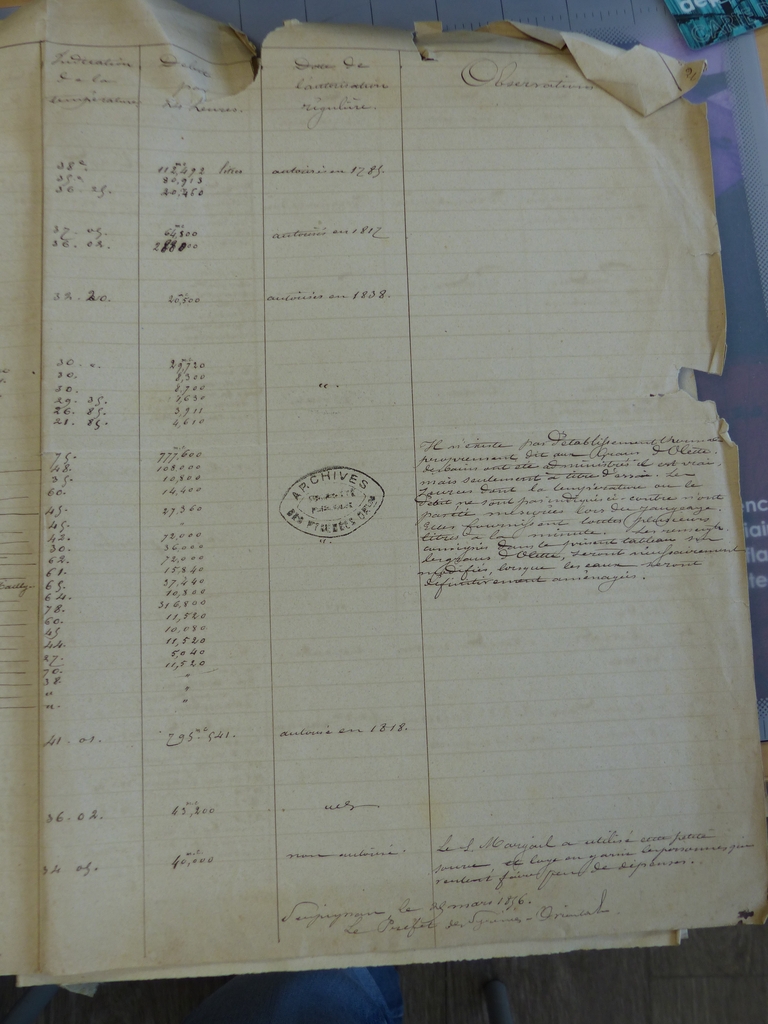 Indication de la température
Débit par 24 heures.
Date de l'autorisation régulière.
Observations
38° 112,492 litres autorisé en 1785.
35." 80,913
36. 25. 20,460
37. 05. 64,800 autorisés en 1817
36. 02. 28800
32. 20. 20,500 autorisés en 1838.
30. " 29,720
30. 8,300
30. 8,700 "
29. 35. 1,630
26. 85. 3,911
21. 85. 4,610
75. 777,600
48. 108,000
35. 10,800
60. 14,400
45. 27,360
45. "
42. 72,000
30. 36,000
62. 72,000
61. 15,840
65. 37,440
64. 10,800
78. 316,800
60. 11,520
45 10,080
44. 11,520
27. 5,040
70. 11,520
38. "
" "
" "
Il n'existe pas d'établissement thermal
proprement dit aux Graus d'Olette.
des bains ont été administrés il est vrai,
mais seulement à titre d'essai. Les
sources dont la température ou le
débit ne sont pas indiqués ci-contre n'ont
pas été mesurées lors du jaugeage.
Elles fournissent toutes plusieurs
litres à la minute. Les renseig.
consignés dans le présent tableau sur
les graus d'Olette, seront nécessairement
modifiés, lorsque les eaux seront
définitivement aménagées.
ARCHIVES
DES PYRÉNÉES
41. 01. 795,541. autorisé en 1818.
36. 02. 43,200
34 05. 40,000 non autorisé. Le S. Marçail a utilisé cette petite
source et loge en garni les personnes qui
veulent faire peu de dépenses.
Perpignan, le 25 mars 1856.
Le Préfet des Pyrénées-Orientales